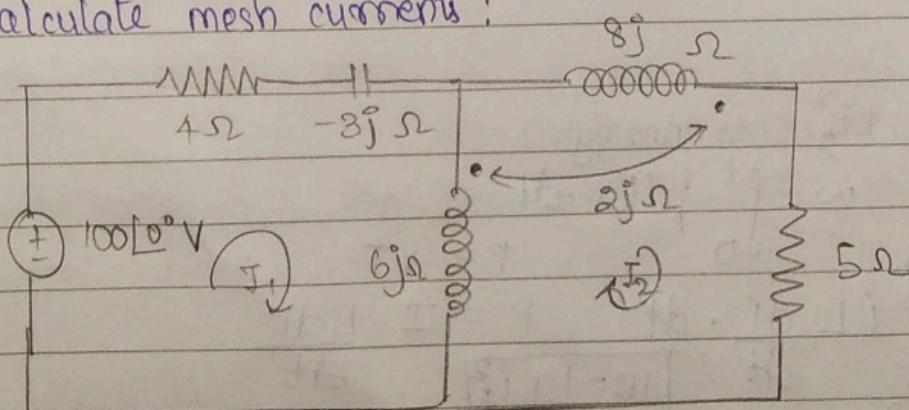 alculate mesh currents :
8j Ω
4Ω -3j Ω
2jΩ
+
-
100∠0° V I₁ 6jΩ I₂ 5Ω